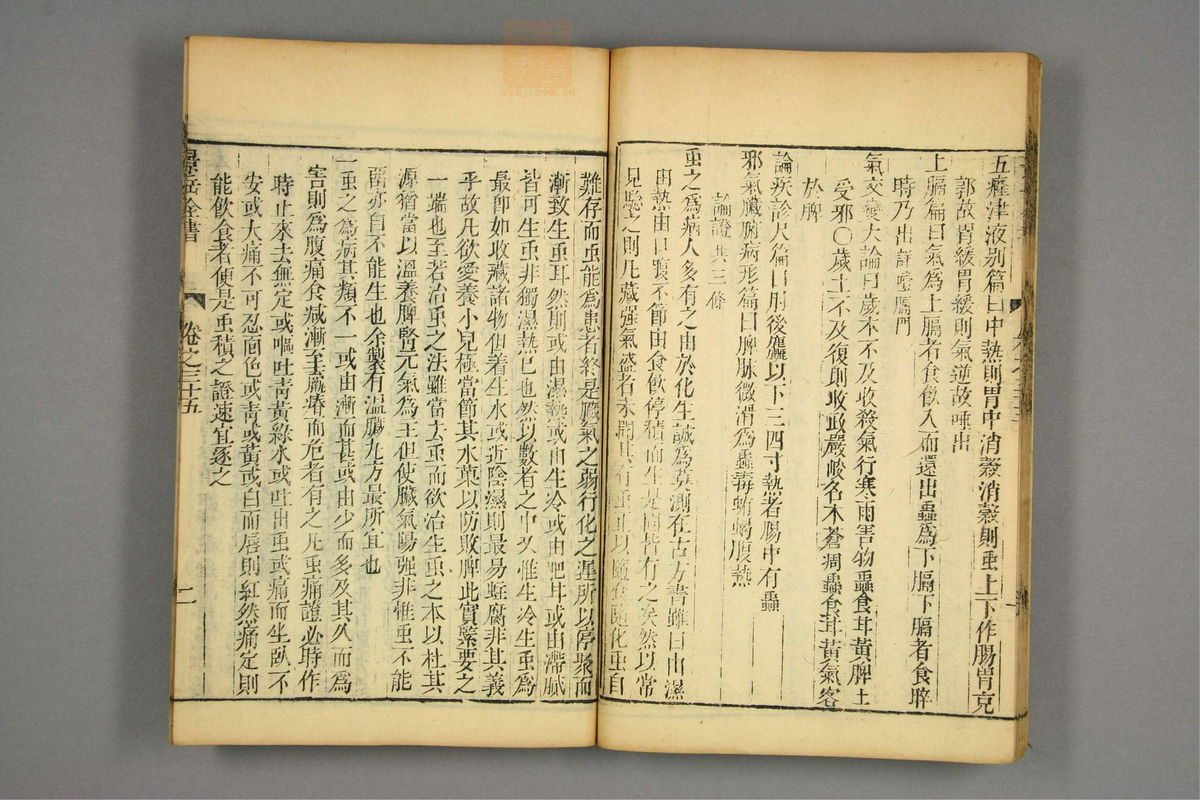 五癃津液别篇曰中熱則胃中消穀消穀則虫上下作腸胃充
郭故胃緩胃緩則氣逆故唾出
上膈篇曰氣為上膈者食飲入而還出蟲為下膈下膈者食晬
時乃出詳噎膈門
氣交變大論曰歲木不及收殺氣行寒雨害物蟲食甘黃脾土
受邪○歲土不及復則收政嚴峻名木蒼凋蟲食甘黃氣客
於脾
論疾診尺篇曰肘後麤以下三四寸熱者腸中有蟲
邪氣臟腑病形篇曰脾脉微滑為蟲毒蛕蝎腹熱
論證共三條
虫之為病人多有之由於化生誠為莫測在古方書雖曰由濕
由熱由口腹不節由食飲停積而生是固皆有之矣然以常
見驗之則凡藏强氣盛者未聞其有虫正以隨食隨化虫自
難存而虫能為患者終是臟氣之弱行化之遲所以停聚而
漸致生虫耳然則或由濕熱或由生冷或由肥甘或由滯膩
皆可生虫非獨濕熱已也然以數者之中又惟生冷生虫為
最即如收藏諸物但着生水或近陰濕則最易蛀腐非其義
乎故凡欲愛養小兒極當節其水菓以防敗脾此實緊要之
一端也至若治虫之法雖當去虫而欲治生虫之本以杜其
源猶當以溫養脾腎元氣為主但使臟氣陽强非惟虫不能
留亦自不能生也余製有溫臟丸方最所宜也
一虫之為病其類不一或由漸而甚或由少而多及其久而為
害則為腹痛食減漸至羸瘠而危者有之凡虫痛證必時作
時止來去無定或嘔吐青黃綠水或吐出虫或痛而坐臥不
安或大痛不可忍面色或青或黃或白而唇則紅然痛定則
能飲食者便是虫積之證速宜逐之
景岳全書
卷之三十五
二